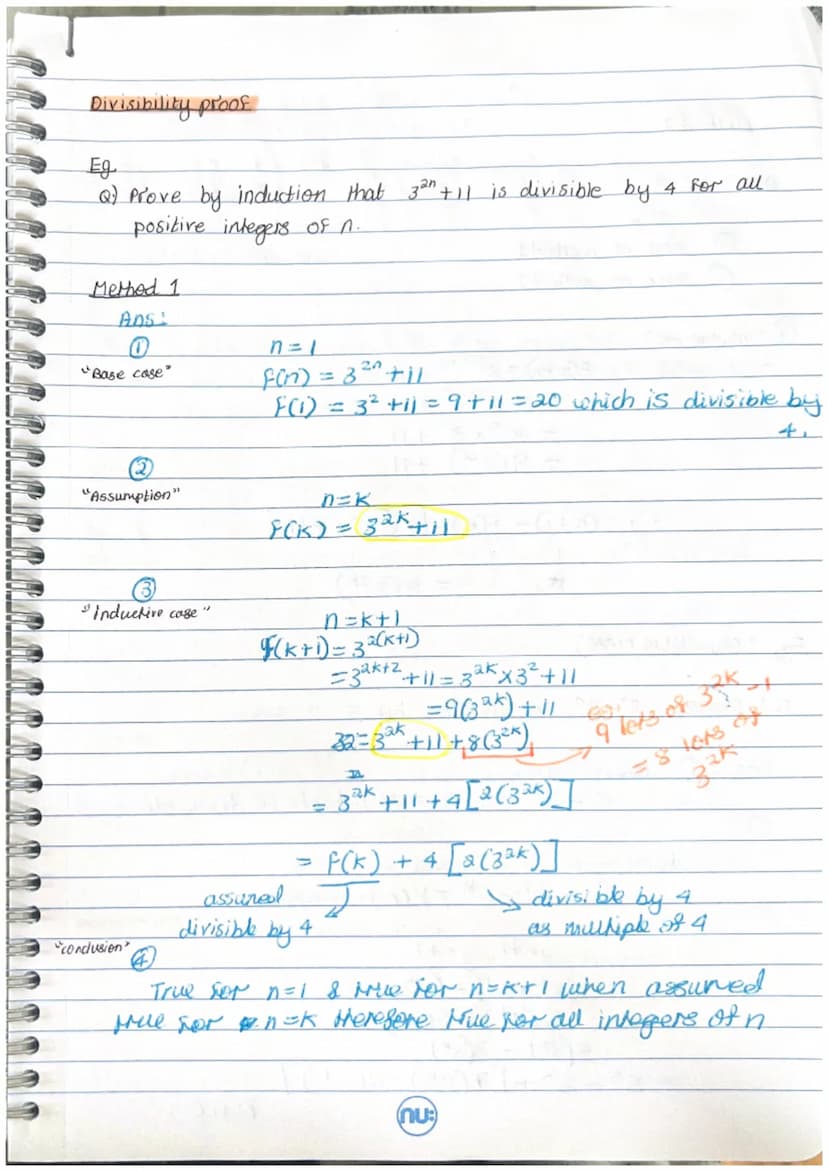 Divisibility proof
Eg
Q) Prove by induction that 3^{2n}+11 is divisible by 4 for all
positive integers of n.
Method 1
Ans:
① n=1
"Base case" f(n) = 3^{2n}+11
f(1) = 3² +11 = 9+11 = 20 which is divisible by
4.
②
"Assumption" n=k
f(k) = 3^{2k}+11
③
"Inductive case" n=k+1
f(k+1) = 3^{2(k+1)}
= 3^{2k+2} +11 = 3^{2k} × 3² +11
= 9(3^{2k}) +11
= 3^{2k} +11 + 8(3^{2k})
9 lots of 3^{2k} -1
= 8 lots of
3^{2k}
= 3^{2k} +11 + 4[2(3^{2k})]
= f(k) + 4[2(3^{2k})]
assumed
divisible by 4
divisible by 4
as multiple of 4
"conclusion"
④
True for n=1 & true for n=k+1 when assumed
true for n=k therefore true for all integers of n
nu: